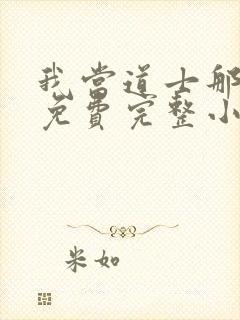 我当道士那
免费完整小
米如